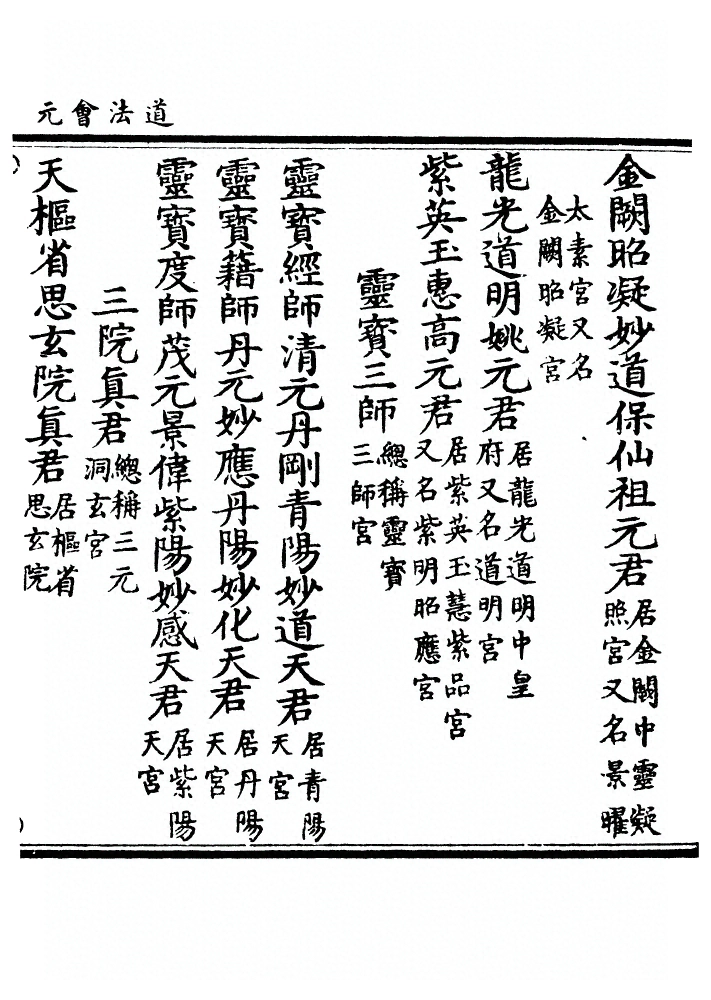 道法會元
金闕昭凝妙道保仙祖元君居金闕中靈凝照宮又名景曜
太素宮又名金闕昭凝宮
龍光道明姚元君居龍光道明中皇府又名道明宮
紫英玉惠高元君居紫英玉慧紫品宮又名紫明昭應宮
靈寳三師總稱靈寳三師宮
靈寳經師清元丹剛青陽妙道天君居青陽天宮
靈寳籍師丹元妙應丹陽妙化天君居丹陽天宮
靈寳度師茂元景偉紫陽妙感天君居紫陽天宮
三院眞君總稱三元洞玄宮
天樞省思玄院眞君居樞省思玄院